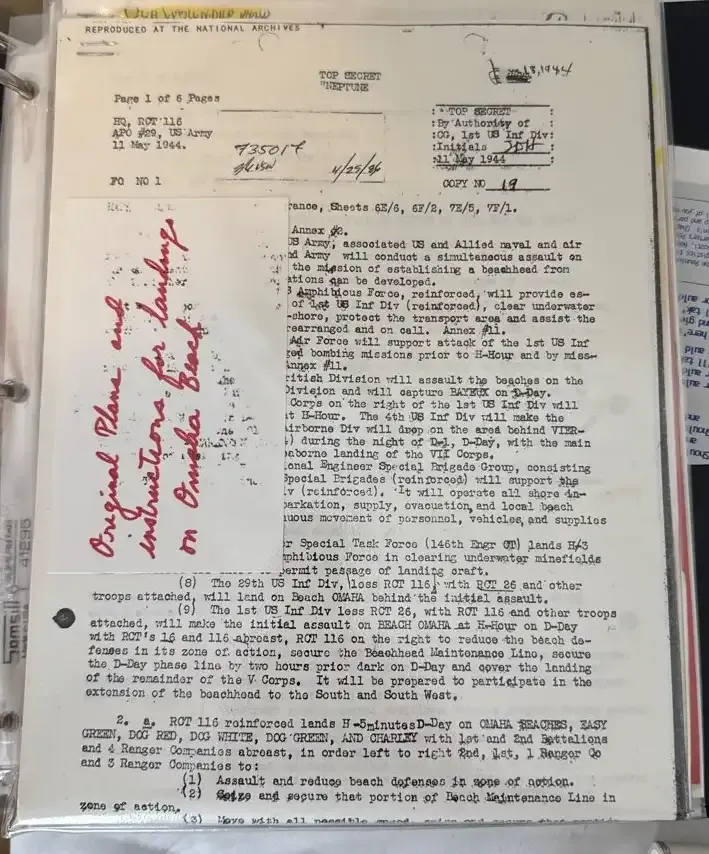 REPRODUCED AT THE NATIONAL ARCHIVES
TOP SECRET
"NEPTUNE
18,1944
Page 1 of 6 Pages
HQ, RCT 116
APO #29, US Army
11 May 1944.
FO NO 1
735017
4/25/86
TOP SECRET
:By Authority of :
:CG, 1st US Inf Div:
:Initials
:11 May 1944
COPY NO 19
Original Plans and
instructions for landings
on Omaha Beach
rance, Sheets 6E/6, 6F/2, 7E/5, 7F/1.
Annex #2.
US Army, associated US and Allied naval and air
nd Army will conduct a simultaneous assault on
the mission of establishing a beachhead from
ations can be developed.
Amphibious Force, reinforced, will provide es-
of 1st US Inf Div (reinforced), clear underwater
-shore, protect the transport area and assist the
rearranged and on call. Annex #11.
Air Force will support attack of the 1st US Inf
ged bombing missions prior to H-Hour and by miss-
Annex #11.
ritish Division will assault the beaches on the
Division and will capture BAYEUX on D-Day.
Corps on the right of the 1st US Inf Div will
at H-Hour. The 4th US Inf Div will make the
irborne Div will drop on the area behind VIER-
) during the night of D-1, D-Day, with the main
aborne landing of the VII Corps.
onal Engineer Special Brigade Group, consisting
Special Brigades (reinforced) will support the
iv (reinforced). It will operate all shore in-
arkation, supply, evacuation, and local beach
uous movement of personnel, vehicles, and supplies
r Special Task Force (146th Engr CT) lands H/3
mphibious Force in clearing underwater minefields
permit passage of landing craft.
(8) The 29th US Inf Div, (less RCT 116, with RCT 26 and other
troops attached, will land on Beach OMAHA behind the initial assault.
(9) The 1st US Inf Div less RCT 26, with RCT 116 and other troops
attached, will make the initial assault on BEACH OMAHA at H-Hour on D-Day
with RCT's 16 and 116 abreast, RCT 116 on the right to reduce the beach de-
fenses in its zone of action, secure the Beachhead Maintenance Line, secure
the D-Day phase line by two hours prior dark on D-Day and cover the landing
of the remainder of the V Corps. It will be prepared to participate in the
extension of the beachhead to the South and South West.
2. a. RCT 116 reinforced lands H-5minutesD-Day on OMAHA BEACHES, EASY
GREEN, DOG RED, DOG WHITE, DOG GREEN, AND CHARLEY with 1st and 2nd Battalions
and 4 Ranger Companies abreast, in order left to right 2nd, 1st, 1 Ranger Co
and 3 Ranger Companies to:
(1) Assault and reduce beach defenses in zone of action.
(2) Seize and secure that portion of Beach Maintenance Line in
zone of action.
(3) Move with all possible speed,
41295